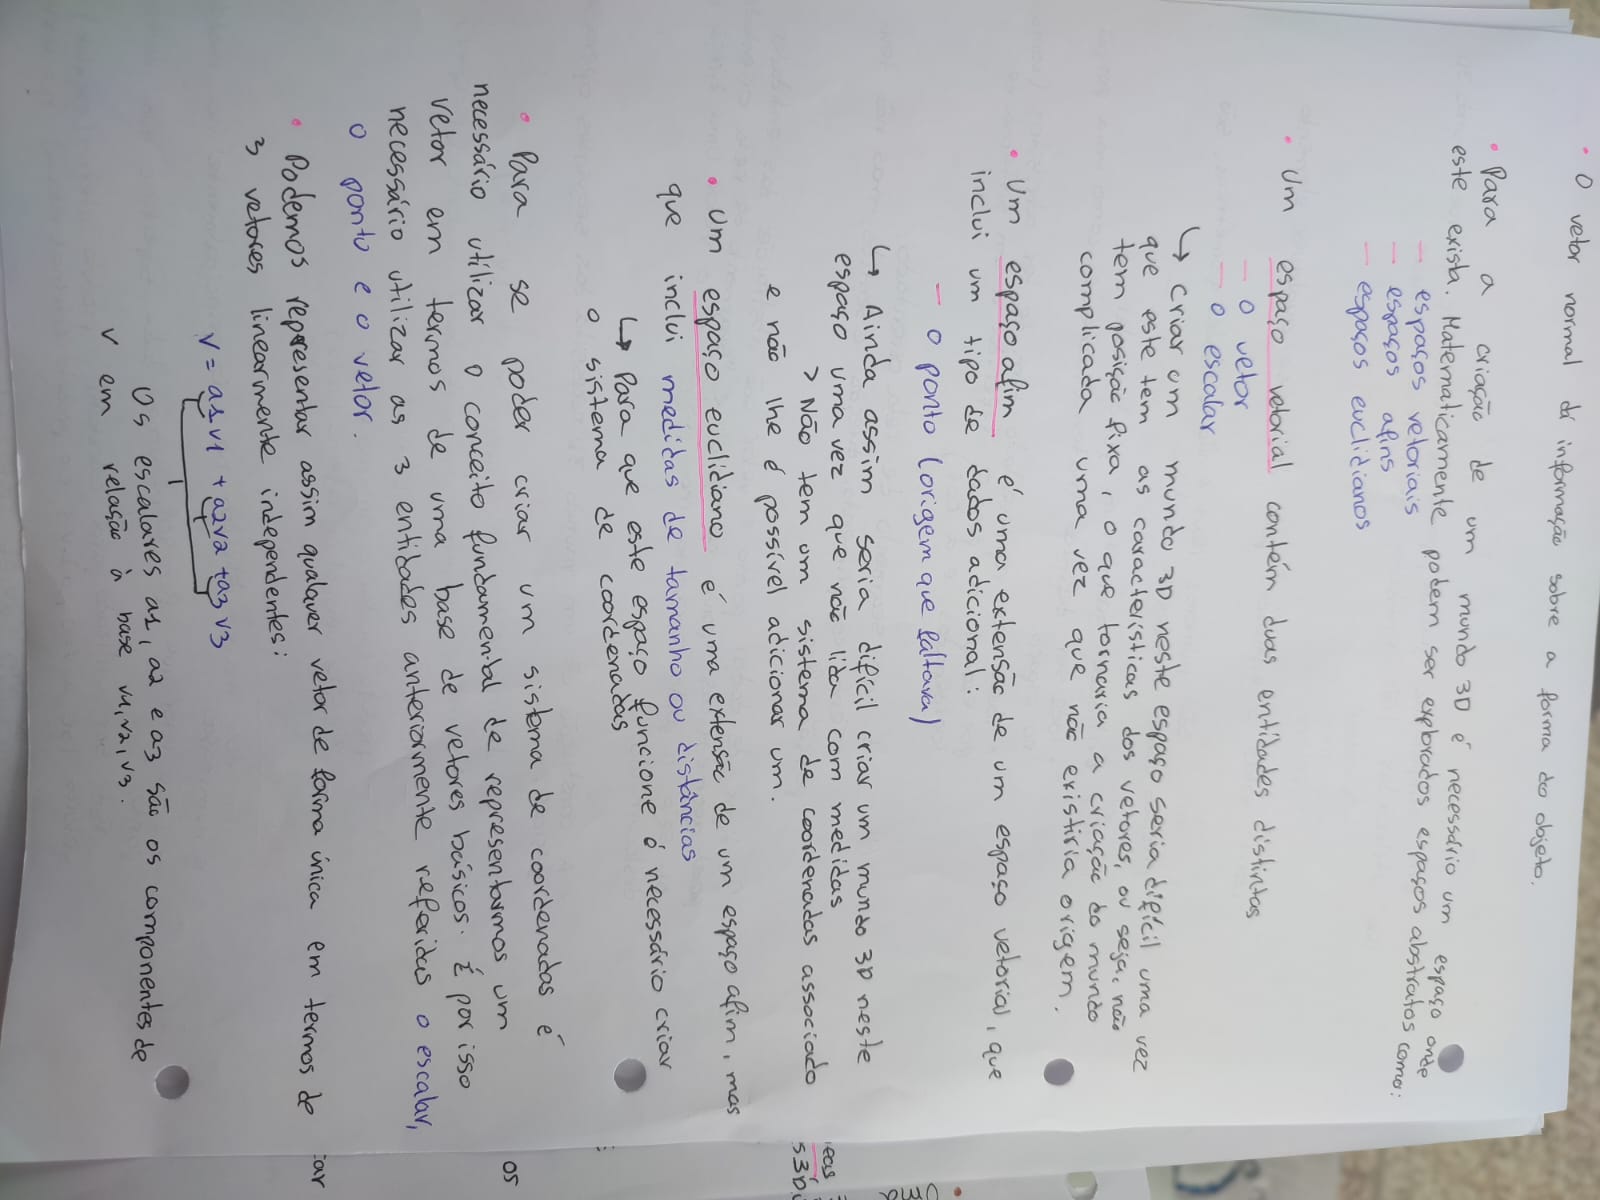 • O vetor normal dá informação sobre a forma do objeto.
• Para a criação de um mundo 3D é necessário um espaço onde
este exista. Matematicamente podem ser explorados espaços abstratos como:
— espaços vetoriais
— espaços afins
— espaços euclidianos
• Um espaço vetorial contém duas entidades distintas
— o vetor
— o escalar
↳ Criar um mundo 3D neste espaço seria difícil uma vez
que este tem as características dos vetores, ou seja, não
tem posição fixa, o que tornaria a criação do mundo
complicada uma vez que não existiria origem.
• Um espaço afim é uma extensão de um espaço vetorial, que
inclui um tipo de dados adicional:
— o ponto (origem que faltava)
↳ Ainda assim seria difícil criar um mundo 3D neste
espaço uma vez que não lida com medidas
> Não tem um sistema de coordenadas associado
e não lhe é possível adicionar um.
• Um espaço euclidiano é uma extensão de um espaço afim, mas
que inclui medidas de tamanho ou distâncias
↳ Para que este espaço funcione é necessário criar
o sistema de coordenadas
• Para se poder criar um sistema de coordenadas é
necessário utilizar o conceito fundamental de representarmos um
vetor em termos de uma base de vetores básicos. É por isso
necessário utilizar as 3 entidades anteriormente referidas o escalar,
o ponto e o vetor.
• Podemos representar assim qualquer vetor de forma única em termos de
3 vetores linearmente independentes:
V = a1v1 + a2v2 + a3v3
Os escalares a1, a2 e a3 são os componentes de
V em relação à base v1, v2, v3.
• Uma
eas
s3D.
os
tar